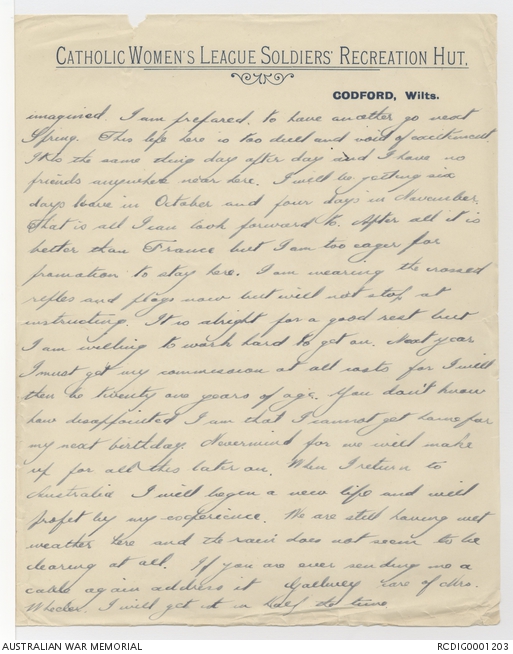 CATHOLIC WOMEN'S LEAGUE SOLDIERS' RECREATION HUT.
CODFORD, Wilts.
imagined I am prepared to have another go next
Spring. This life here is too dull and void of excitement
It is the same thing day after day and I have no
friends anywhere near here. I will be getting six
days leave in October and four days in November.
That is all I can look forward to. After all it is
better than France but I am too eager for
promotion to stay here. I am wearing the crossed
rifles and flags now but will not stop at
instructing. It is alright for a good rest but
I am willing to work hard to get on. Next year
I must get my commission at all costs for I will
then be twenty one years of age. You don't know
how disappointed I am that I cannot get home for
my next birthday. Nevermind for we will make
up for all this later on. When I return to
Australia I will begin a new life and will
profit by my experience. We are still having wet
weather here and the rain does not seem to be
clearing at all. If you are ever sending me a
cable again address it Gallwey care of Mrs.
Wheeler. I will get it in half the time
AUSTRALIAN WAR MEMORIAL
RCDIG0001203